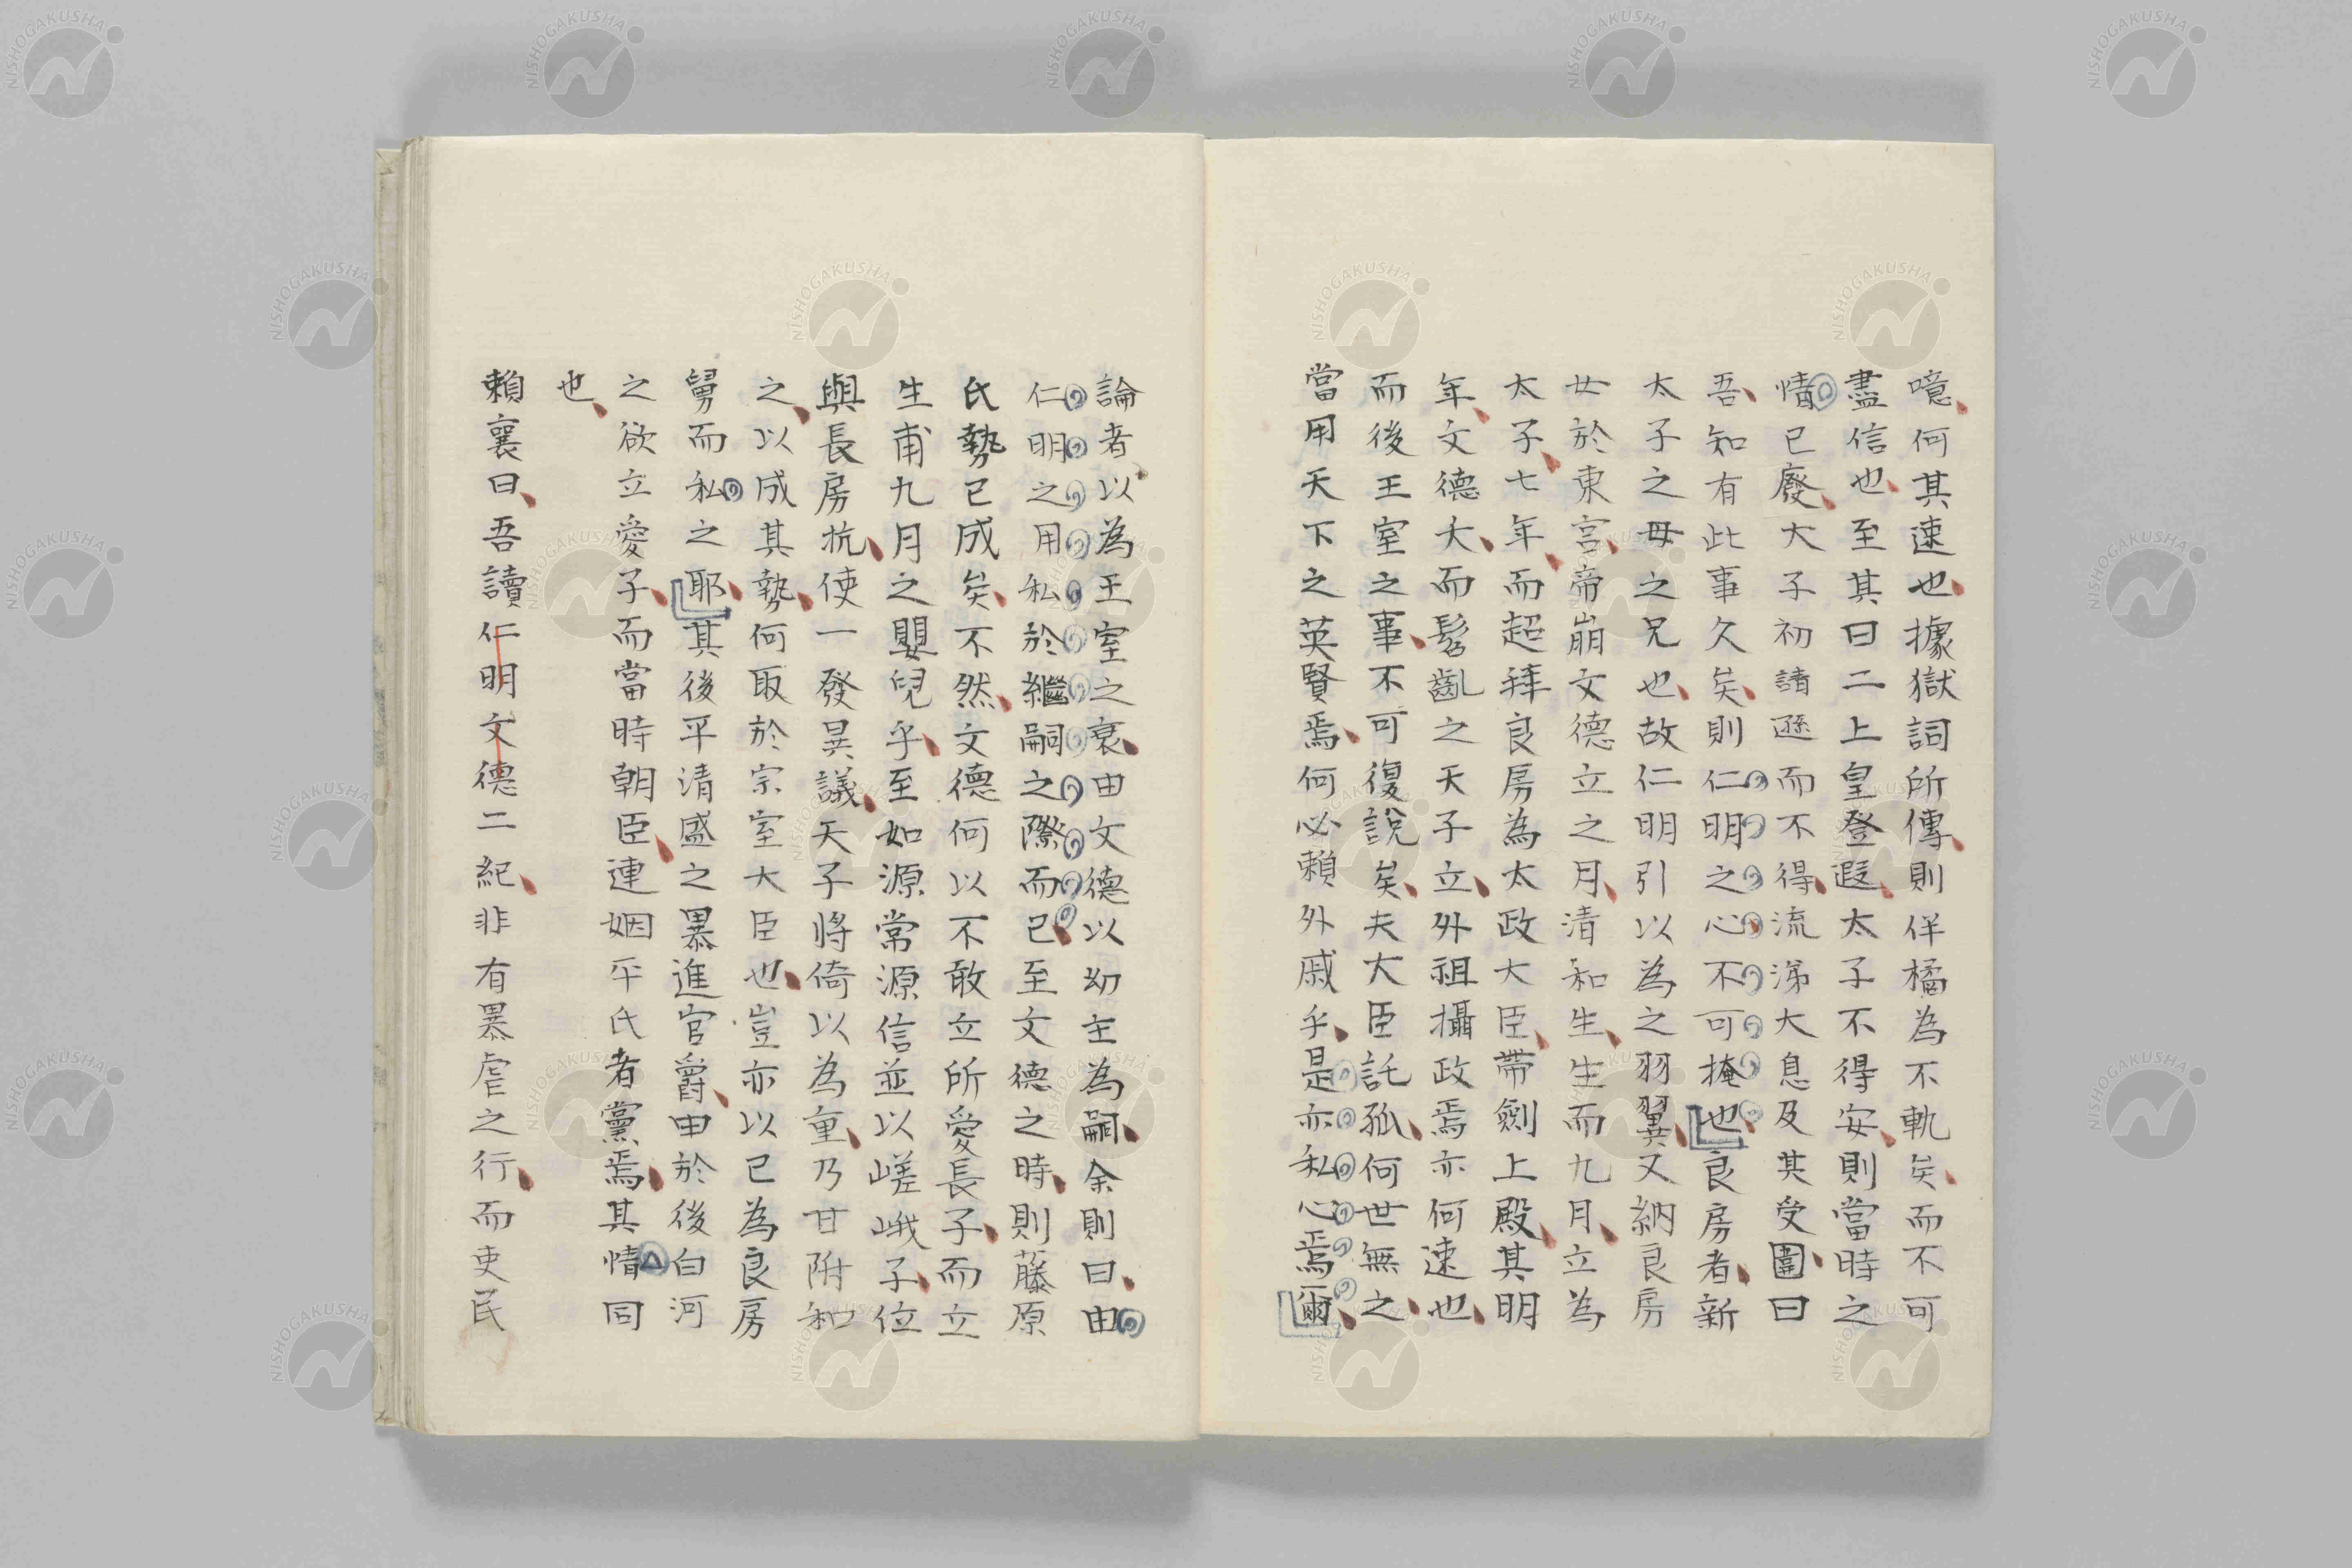 噫何其速也據獄詞所傳則伴橘為不軌矣而不可
盡信也至其曰二上皇登遐太子不得安則當時之
情已廢大子初請遜而不得流涕大息及其受圍曰
吾知有此事久矣則仁明之心不可掩也良房者新
太子之母之兄也故仁明引以為之羽翼又納良房
女於東宮帝崩文德立之月清和生生而九月立為
太子七年而超拜良房為太政大臣帶劍上殿其明
年文德大而髫齓之天子立外祖攝政焉亦何速也
而後王室之事不可復說矣夫大臣託孤何世無之
當用天下之英賢焉何必賴外戚乎是亦私心焉爾
論者以為王室之衰由文德以幼主為嗣余則曰由
仁明之用私於繼嗣之際而已至文德之時則藤原
氏勢已成矣不然文德何以不敢立所愛長子而立
生甫九月之嬰兒乎至如源常源信並以嵯峨子位
與長房抗使一發異議天子將倚以為重乃甘附和
之以成其勢何取於宗室大臣也豈亦以已為良房
舅而私之耶其後平清盛之暴進官爵由於後白河
之欲立愛子而當時朝臣連姻平氏者黨焉其情同
也
賴襄曰吾讀仁明文德二紀非有暴虐之行而吏民
NISHOGAKUSHA